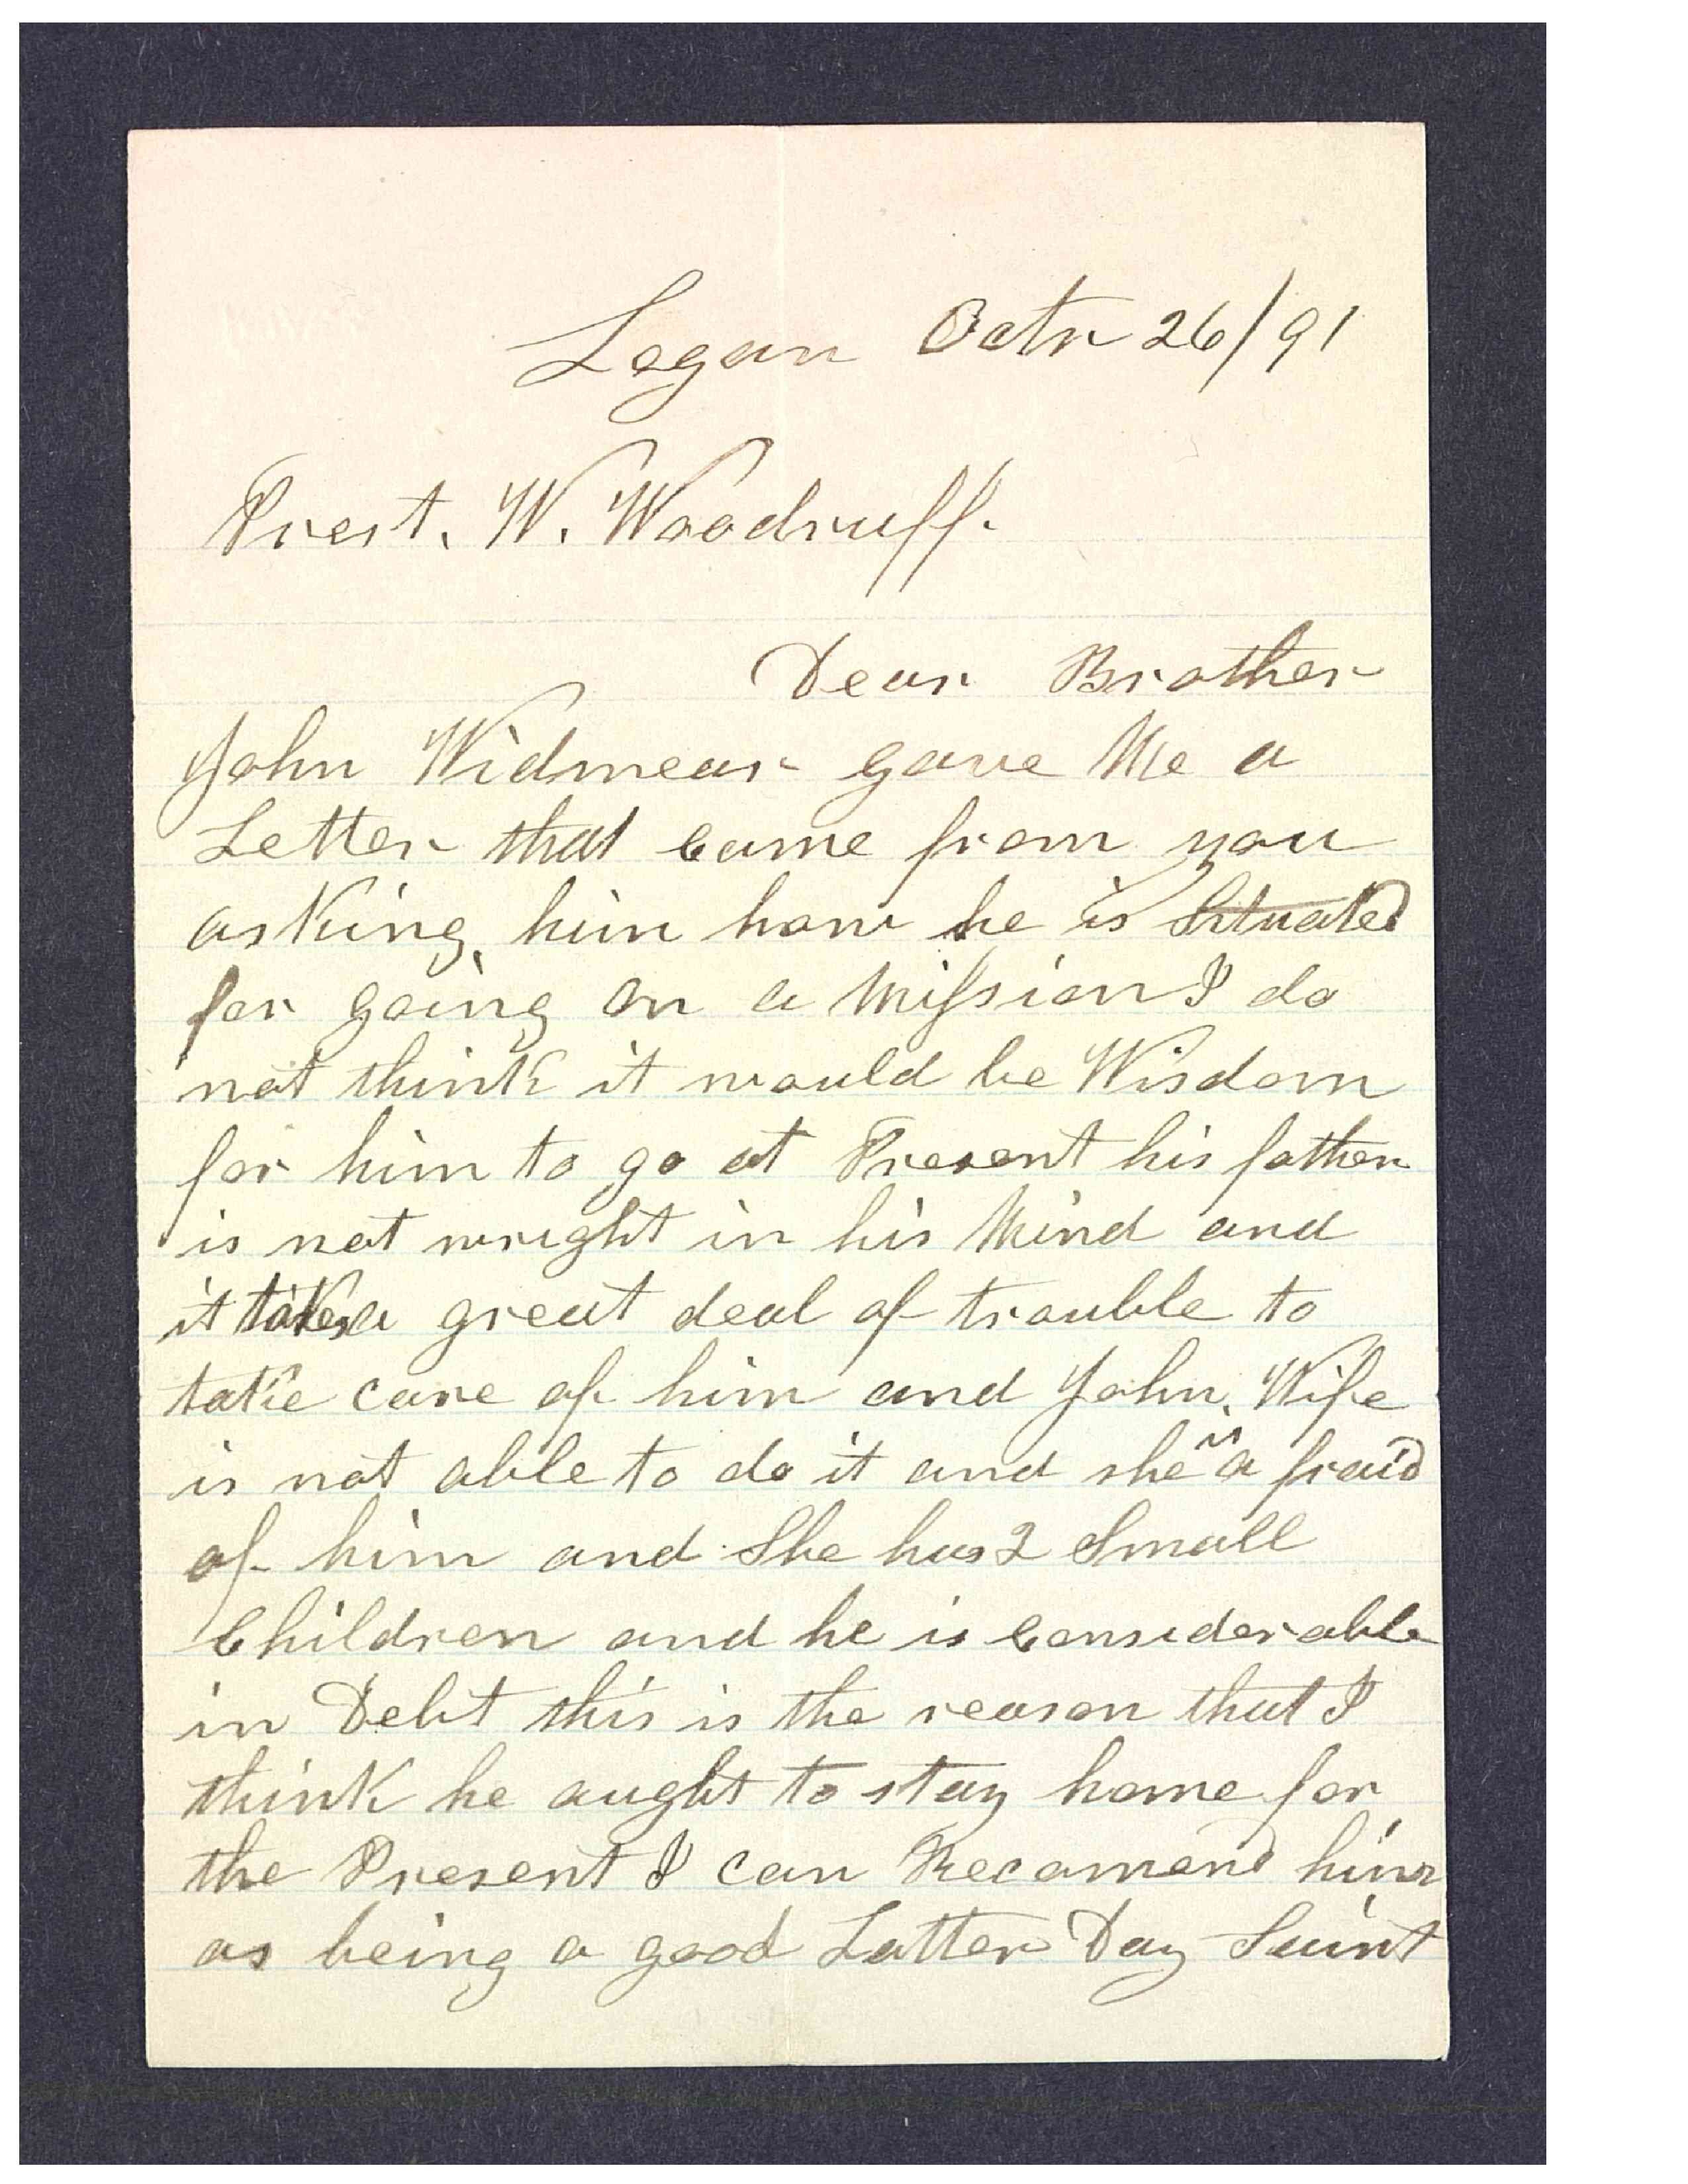 Logan Octr 26/91
Prest. W. Woodruff.
Dear Brother
John Widmear gave Me a
Letter that Came from you
asKing him how he is Situated
for going on a Mission I do
not think it would be Wisdom
for him to go at Present his father
is not wright in his Mind and
it takes a great deal of trouble to
take care of him and John, Wife
is not able to do it and she is a fraid
of him and She has 2 Small
Children and he is Considerable
in Debt this is the reason that I
think he aught to stay home for
the Present I can Recomend him
as being a good Latter Day Saint